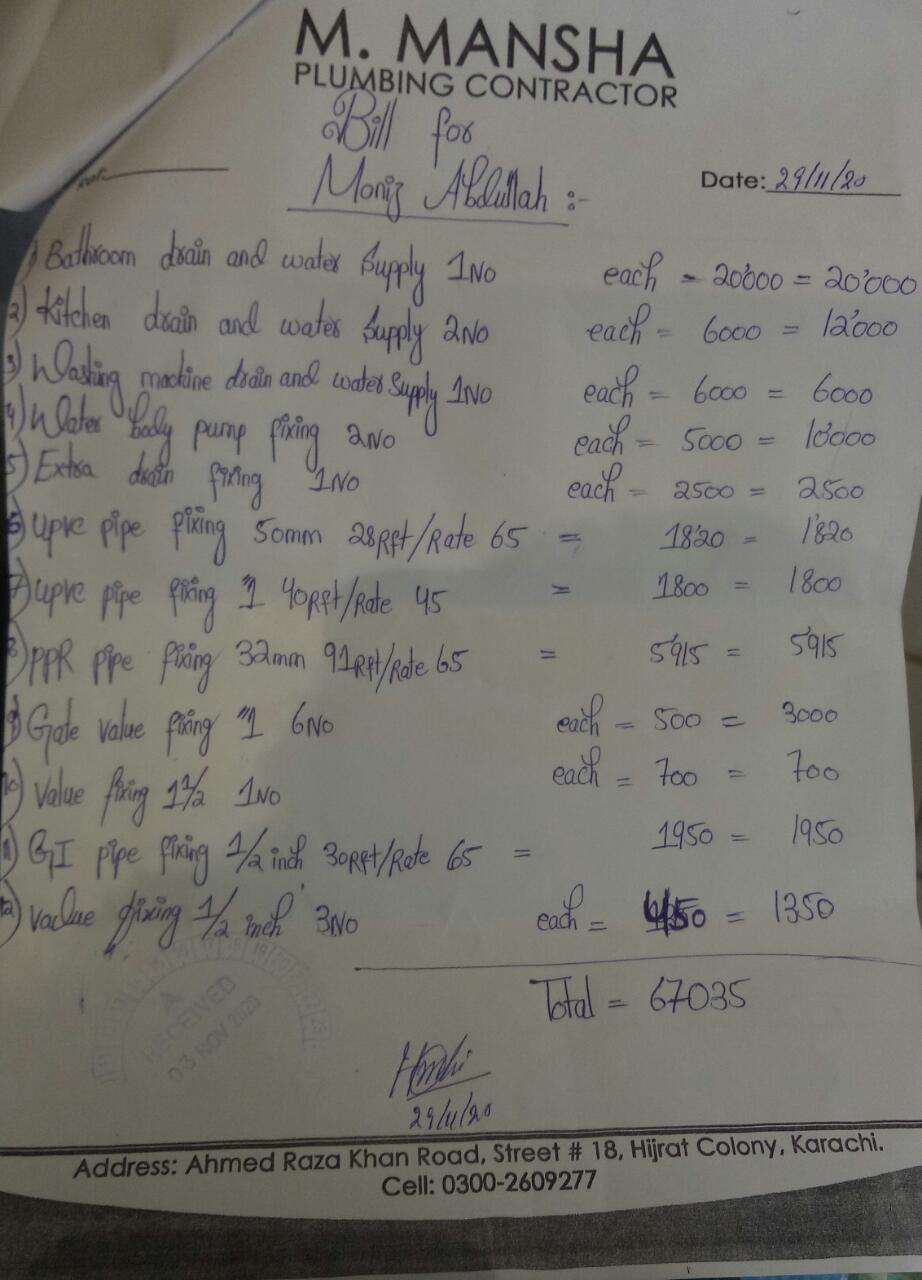 M. MANSHA
PLUMBING CONTRACTOR
Bill for
Moniz Abdullah :-
Date: 29/11/20
1) Bathroom drain and water Supply 1No each - 20'000 = 20'000
2) Kitchen drain and water Supply 2No each = 6000 = 12'000
3) Washing machine drain and water Supply 1No each = 6000 = 6000
4) Water body pump fixing 2No each = 5000 = 10'000
5) Extra drain fixing 1No each = 2500 = 2500
6) upvc pipe fixing 50mm 28Rft/Rate 65 = 18'20 = 1'820
7) upvc pipe fixing "1 40Rft/Rate 45 = 1800 = 1800
8) PPR pipe fixing 32mm 91Rft/Rate 65 = 5'915 = 5'915
9) Gate value fixing "1 6No each = 500 = 3000
10) Value fixing 1½ 1No each = 700 = 700
11) GI pipe fixing 1/2 inch 30Rft/Rate 65 = 1950 = 1950
12) Value fixing 1/2 inch 3No each = 450 = 1350
Total = 67035
RECEIVED
03 NOV 2020
29/11/20
Address: Ahmed Raza Khan Road, Street # 18, Hijrat Colony, Karachi.
Cell: 0300-2609277